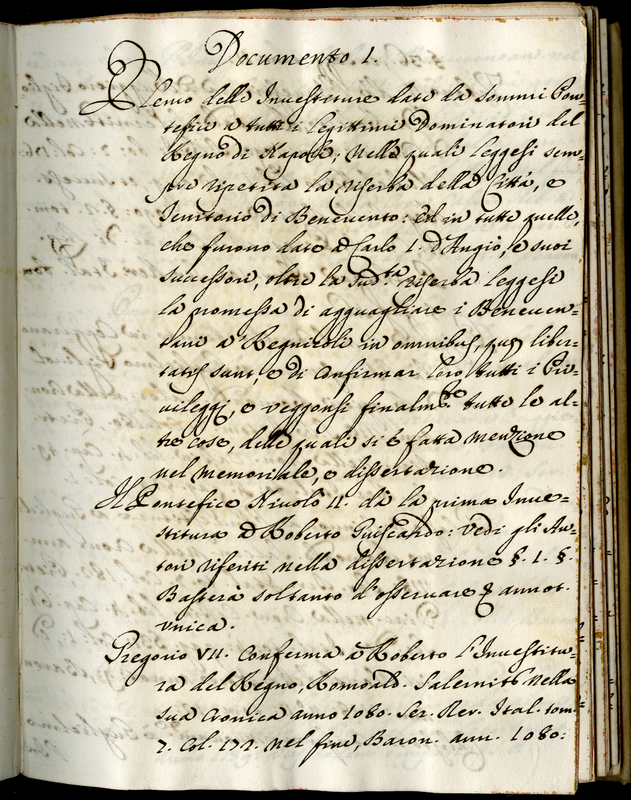 Documento. I.
Elenco delle Investiture date da sommi Pon=
tefici a tutti i legittimi Dominatori del
Regno di Napoli, nelle quali leggesi sem=
pre ripetita la riserba della Città, e
Territorio di Benevento: Ed in tutte quelle,
che furono date a Carlo I. d'Angiò, e suoi
successori, oltre la sud.ta riserba leggesi
la promessa di agguagliare i Beneven=
tani a' Regnicoli in omnibus, quę liber=
tatis sunt, e di confirmar loro tutti i Pri=
vileggi, e veggonsi finalm.te tutte le al=
tre cose, delle quali si è fatta menzione
nel memoriale, e dissertazione.
Il Pontefice Nicolò II. dà la prima Inve=
stitura a Roberto Guiscardo: Vedi gli Au=
tori riferiti nella dissertazione §. I. §.
Basterà soltanto d'osservare annot.
unica.
Gregorio VII. conferma a Roberto l'Investitu=
ra del Regno, Romoald. Salernit. nella
sua Cronica anno 1080. Ser. Rer. Ital. tom.
7. Col. 172. nel fine, Baron. ann. 1080: